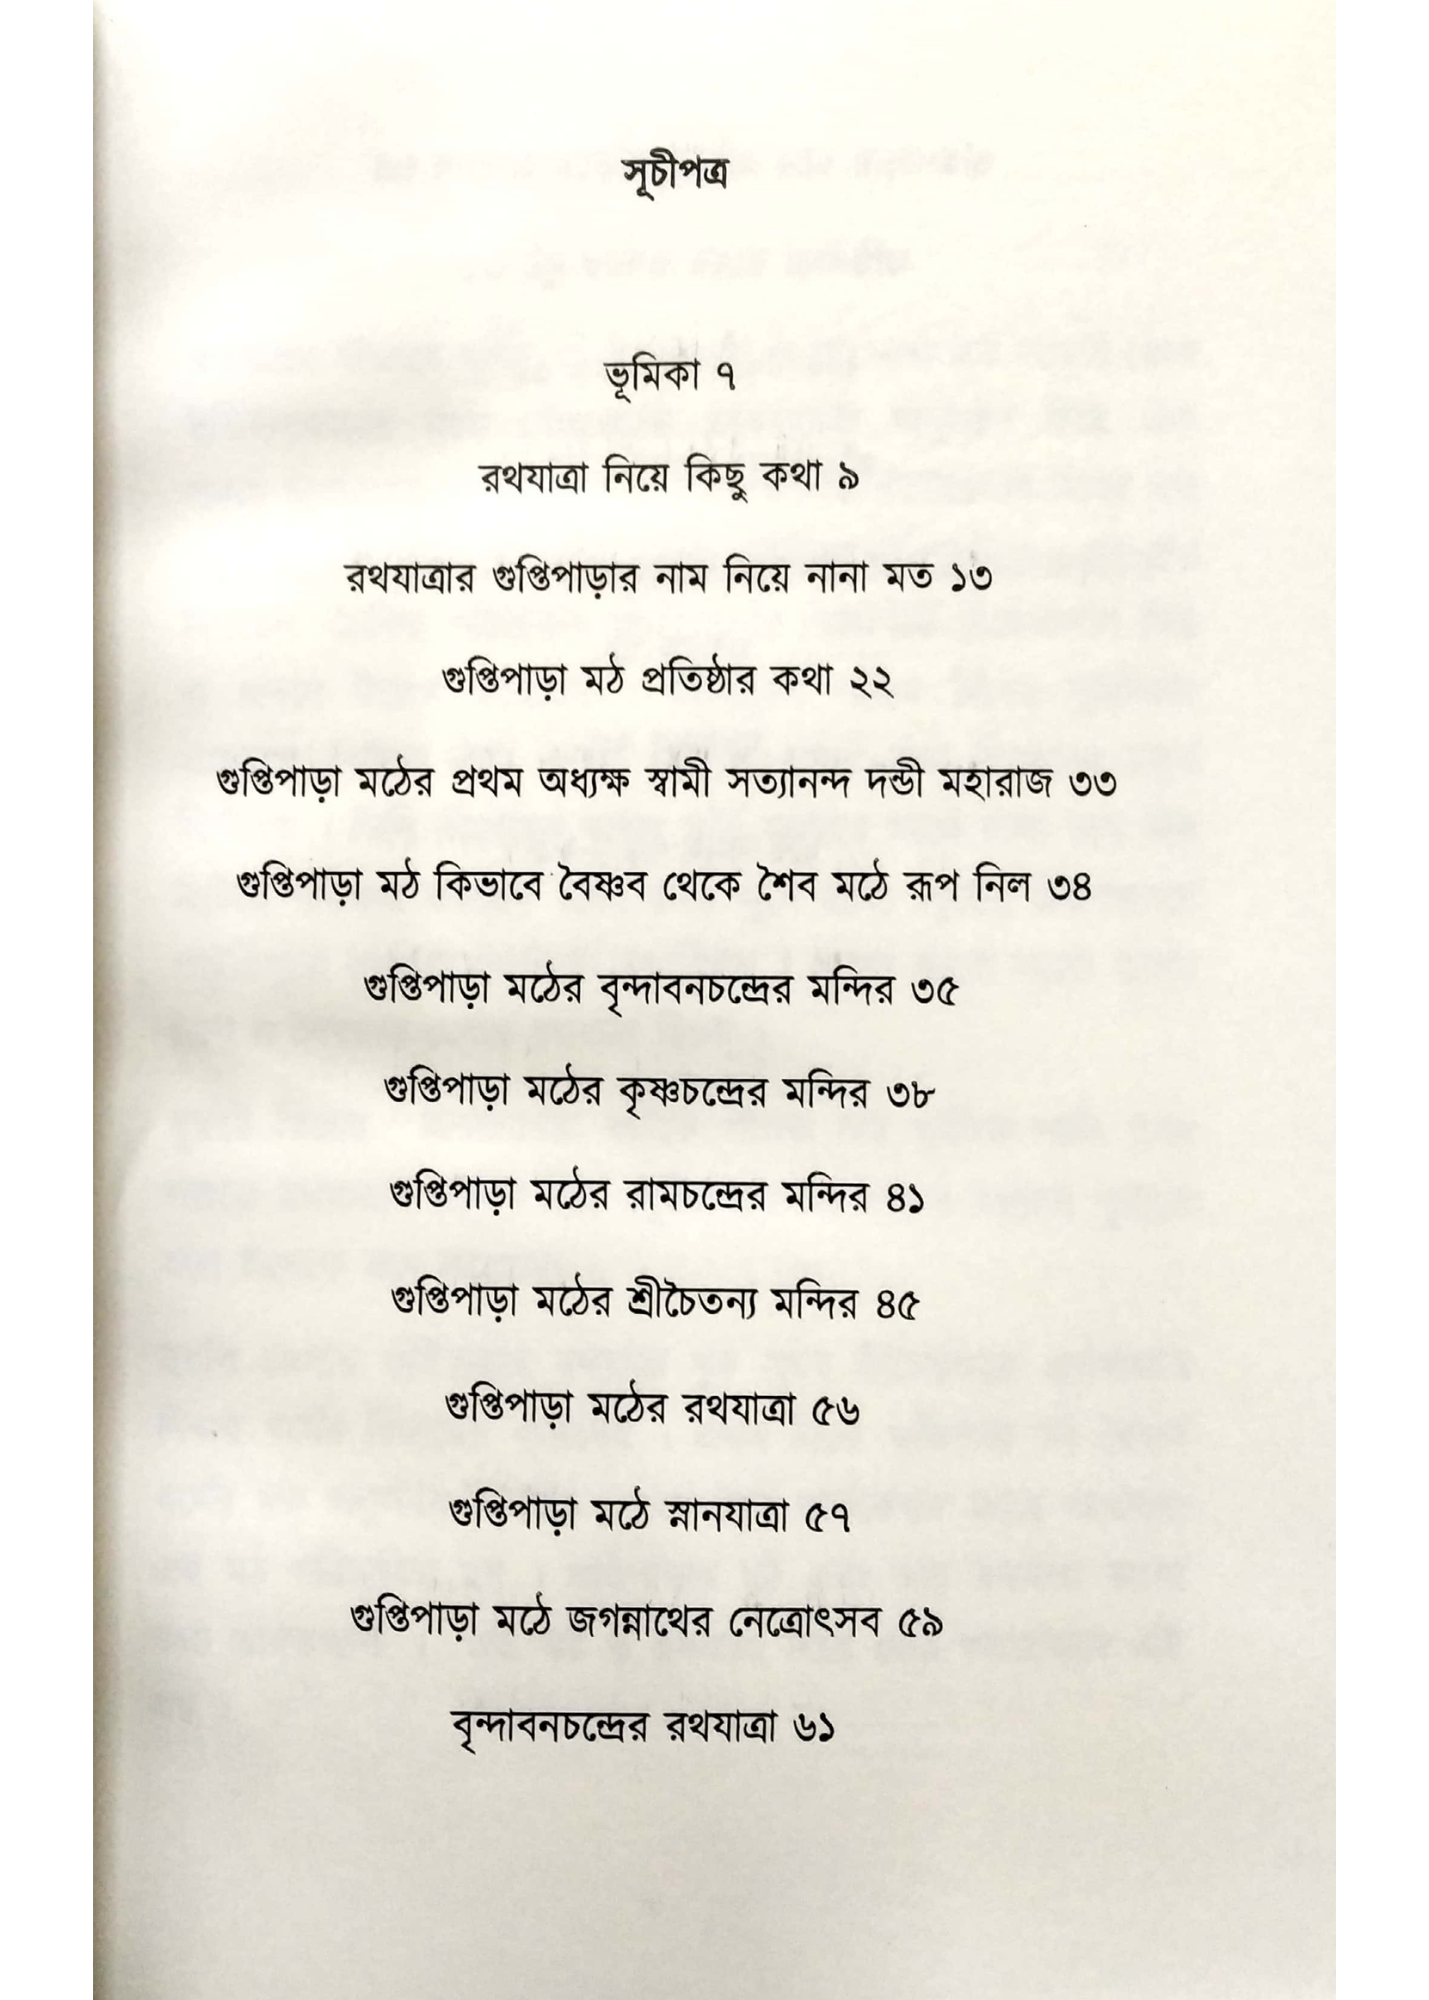 সূচীপত্র
ভূমিকা ৭
রথযাত্রা নিয়ে কিছু কথা ৯
রথযাত্রার গুপ্তিপাড়ার নাম নিয়ে নানা মত ১৩
গুপ্তিপাড়া মঠ প্রতিষ্ঠার কথা ২২
গুপ্তিপাড়া মঠের প্রথম অধ্যক্ষ স্বামী সত্যানন্দ দন্ডী মহারাজ ৩৩
গুপ্তিপাড়া মঠ কিভাবে বৈষ্ণব থেকে শৈব মঠে রূপ নিল ৩৪
গুপ্তিপাড়া মঠের বৃন্দাবনচন্দ্রের মন্দির ৩৫
গুপ্তিপাড়া মঠের কৃষ্ণচন্দ্রের মন্দির ৩৮
গুপ্তিপাড়া মঠের রামচন্দ্রের মন্দির ৪১
গুপ্তিপাড়া মঠের শ্রীচৈতন্য মন্দির ৪৫
গুপ্তিপাড়া মঠের রথযাত্রা ৫৬
গুপ্তিপাড়া মঠে স্নানযাত্রা ৫৭
গুপ্তিপাড়া মঠে জগন্নাথের নেত্রোৎসব ৫৯
বৃন্দাবনচন্দ্রের রথযাত্রা ৬১